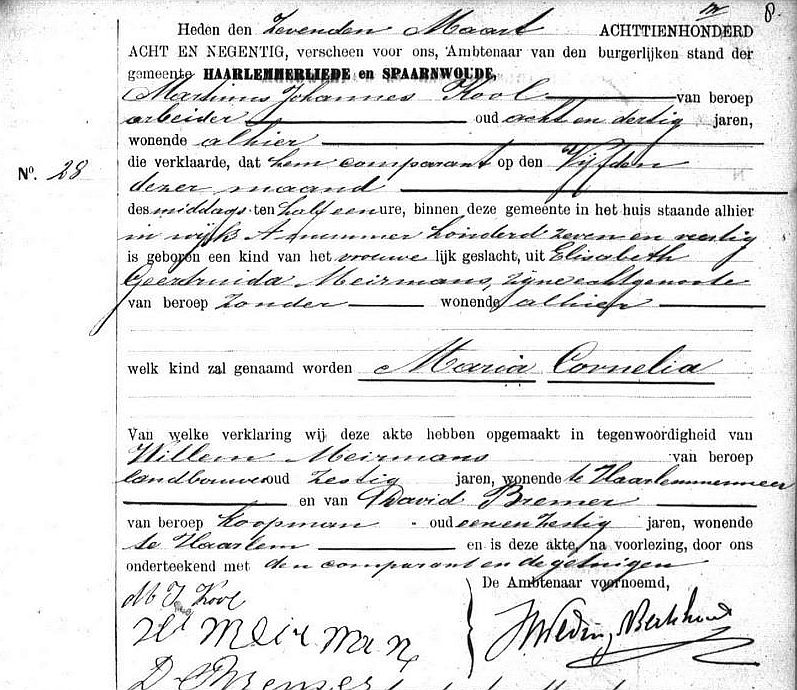 8.
Heden den zevenden Maart ACHTTIENHONDERD
ACHT EN NEGENTIG, verscheen voor ons, Ambtenaar van den burgerlijken stand der
gemeente HAARLEMMERLIEDE en SPAARNWOUDE,
Martinus Johannes Kool van beroep
arbeider oud acht en dertig jaren,
wonende alhier
die verklaarde, dat hem comparant op den Vijfden
No. 28
dezer maand
des middags ten half een ure, binnen deze gemeente in het huis staande alhier
in wijk A nummer honderd zeven en veertig
is geboren een kind van het vrouwelijk geslacht, uit Elisabeth
Geertruida Meirmans, zijne echtgenoote
van beroep zonder wonende alhier
welk kind zal genaamd worden Maria Cornelia
Van welke verklaring wij deze akte hebben opgemaakt in tegenwoordigheid van
Willem Meirmans van beroep
landbouwer oud zestig jaren, wonende te Haarlemmermeer
en van David Bremer
van beroep koopman oud een en zestig jaren, wonende
te Haarlem en is deze akte, na voorlezing, door ons
onderteekend met den comparant en de getuigen
De Ambtenaar voornoemd,
M J Kool
W Meirman
D Bremer